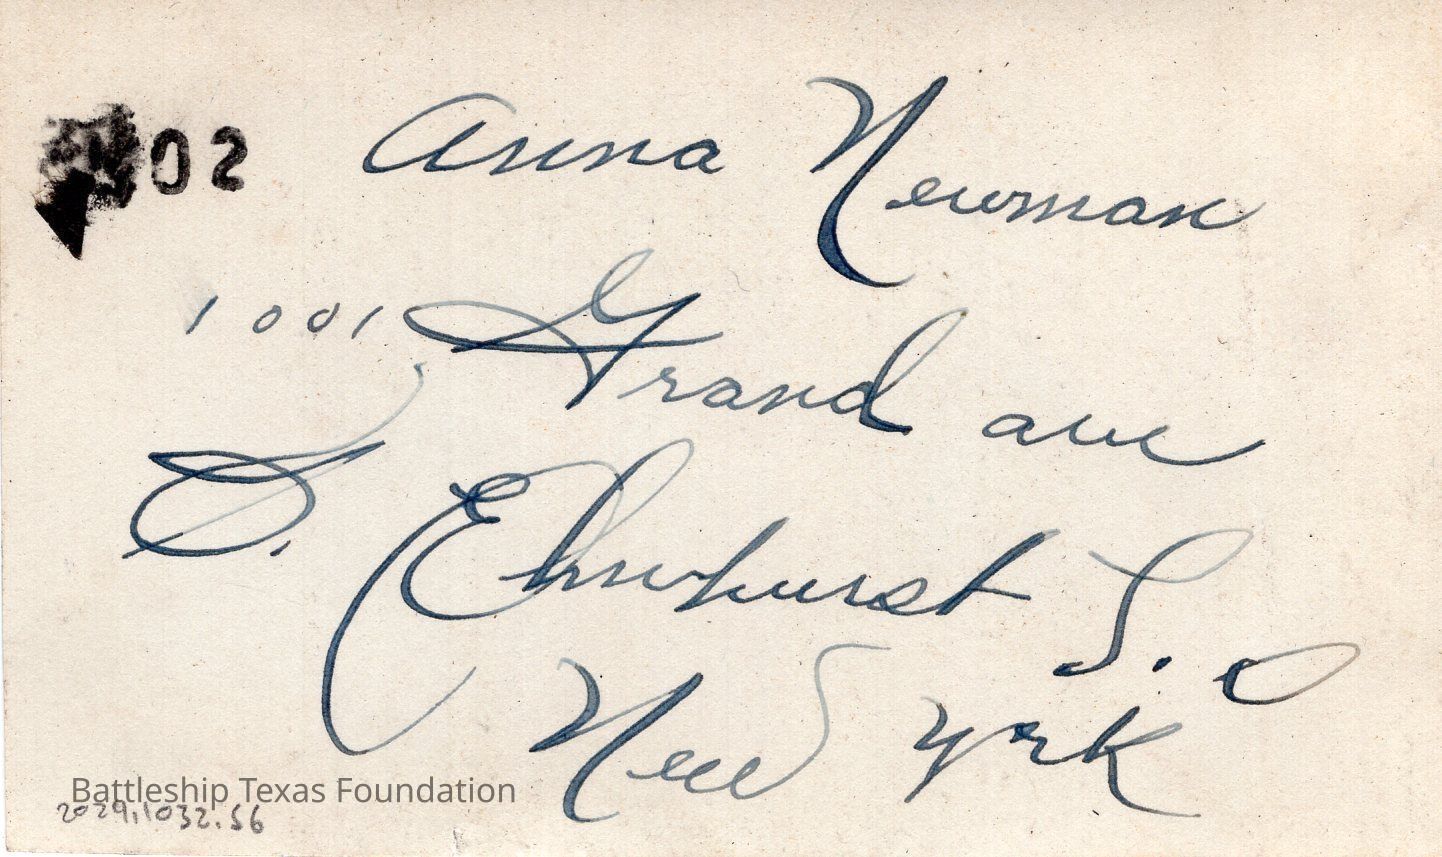 02
Anna Newman
1001 Grand ave
Elmhurst L. I.
New York
Battleship Texas Foundation
2029.1032.56